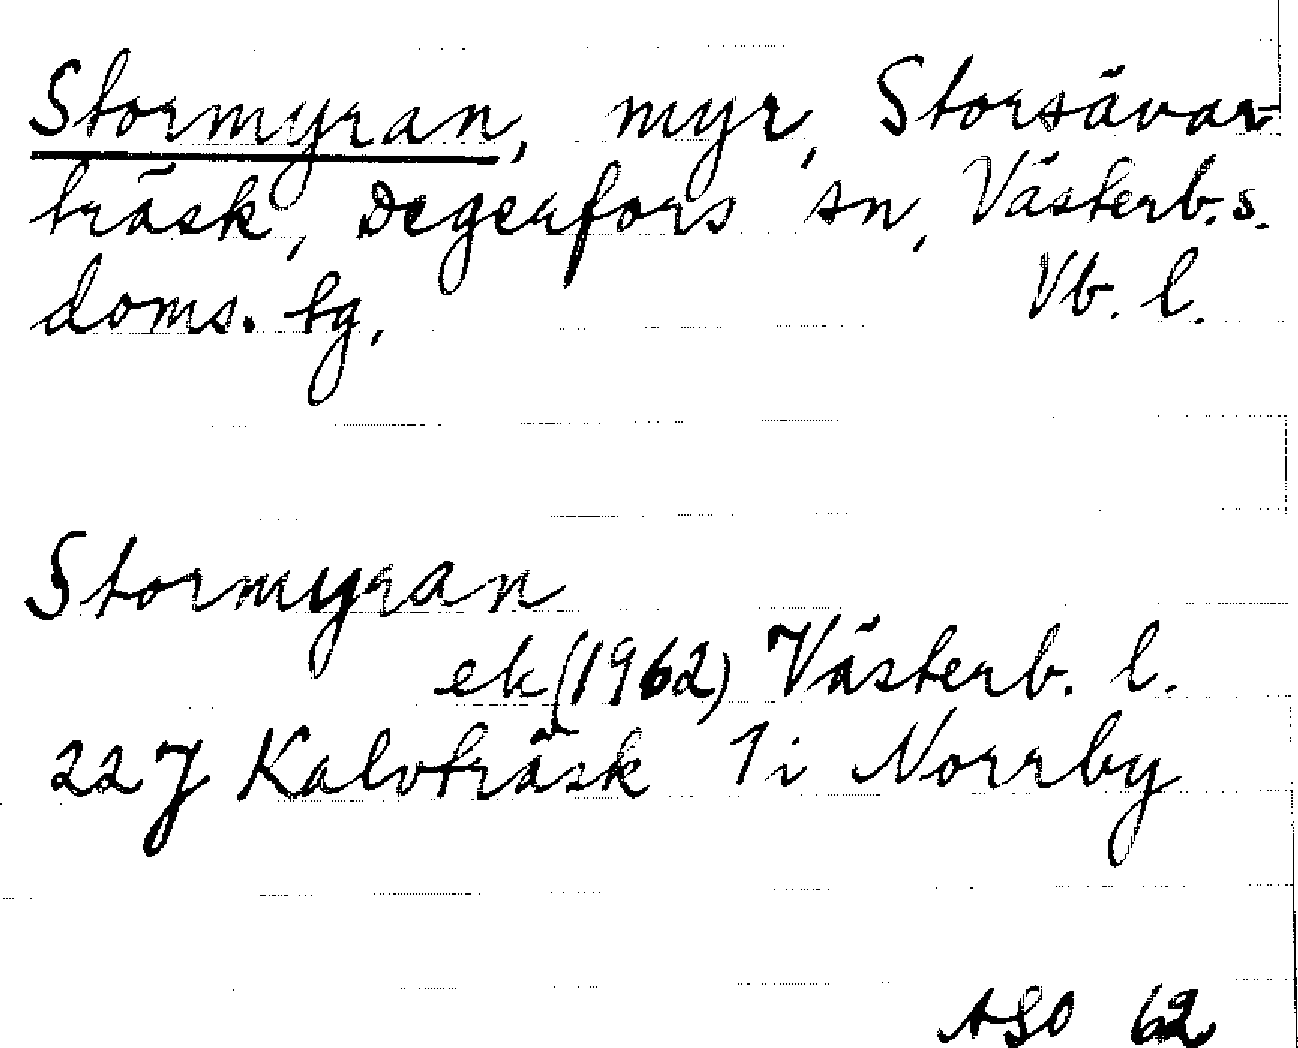 Stormyran, myr, Storsävar-
träsk, Degerfors sn, Västerb. s.
doms. tg,
Vb. l.
Stormyran
ek (1962) Västerb. l.
22 J Kalvträsk 1 i Norrby
ASO 62